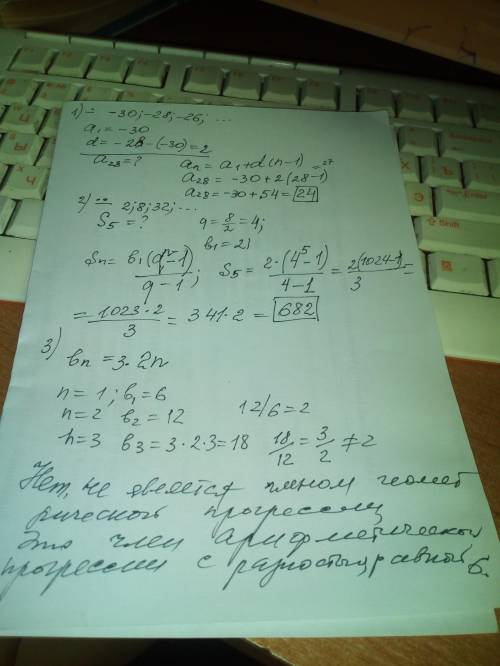 1) = -30; -28; -26; ...
a₁ = -30
d = -28 - (-30) = 2
a₂₈ = ? aₙ = a₁ + d(n-1)
a₂₈ = -30 + 2(28-1) = 27
a₂₈ = -30 + 54 = 24
2) 2; 8; 32; ...
S₅ = ? q = 8/2 = 4;
b₁ = 2)
Sₙ = b₁(qⁿ-1)/q-1; S₅ = 2·(4⁵-1)/4-1 = 2(1024-1)/3 =
= 1023·2/3 = 341·2 = 682
3)
bₙ = 3·2n
n = 1; b₁ = 6
n = 2 b₂ = 12 12/6 = 2
n = 3 b₃ = 3·2·3 = 18 18/12 = 3/2 ≠ 2
Нет, не является членом геомет
рической прогрессии
Это член арифметической
прогрессии с разностью равной 6.